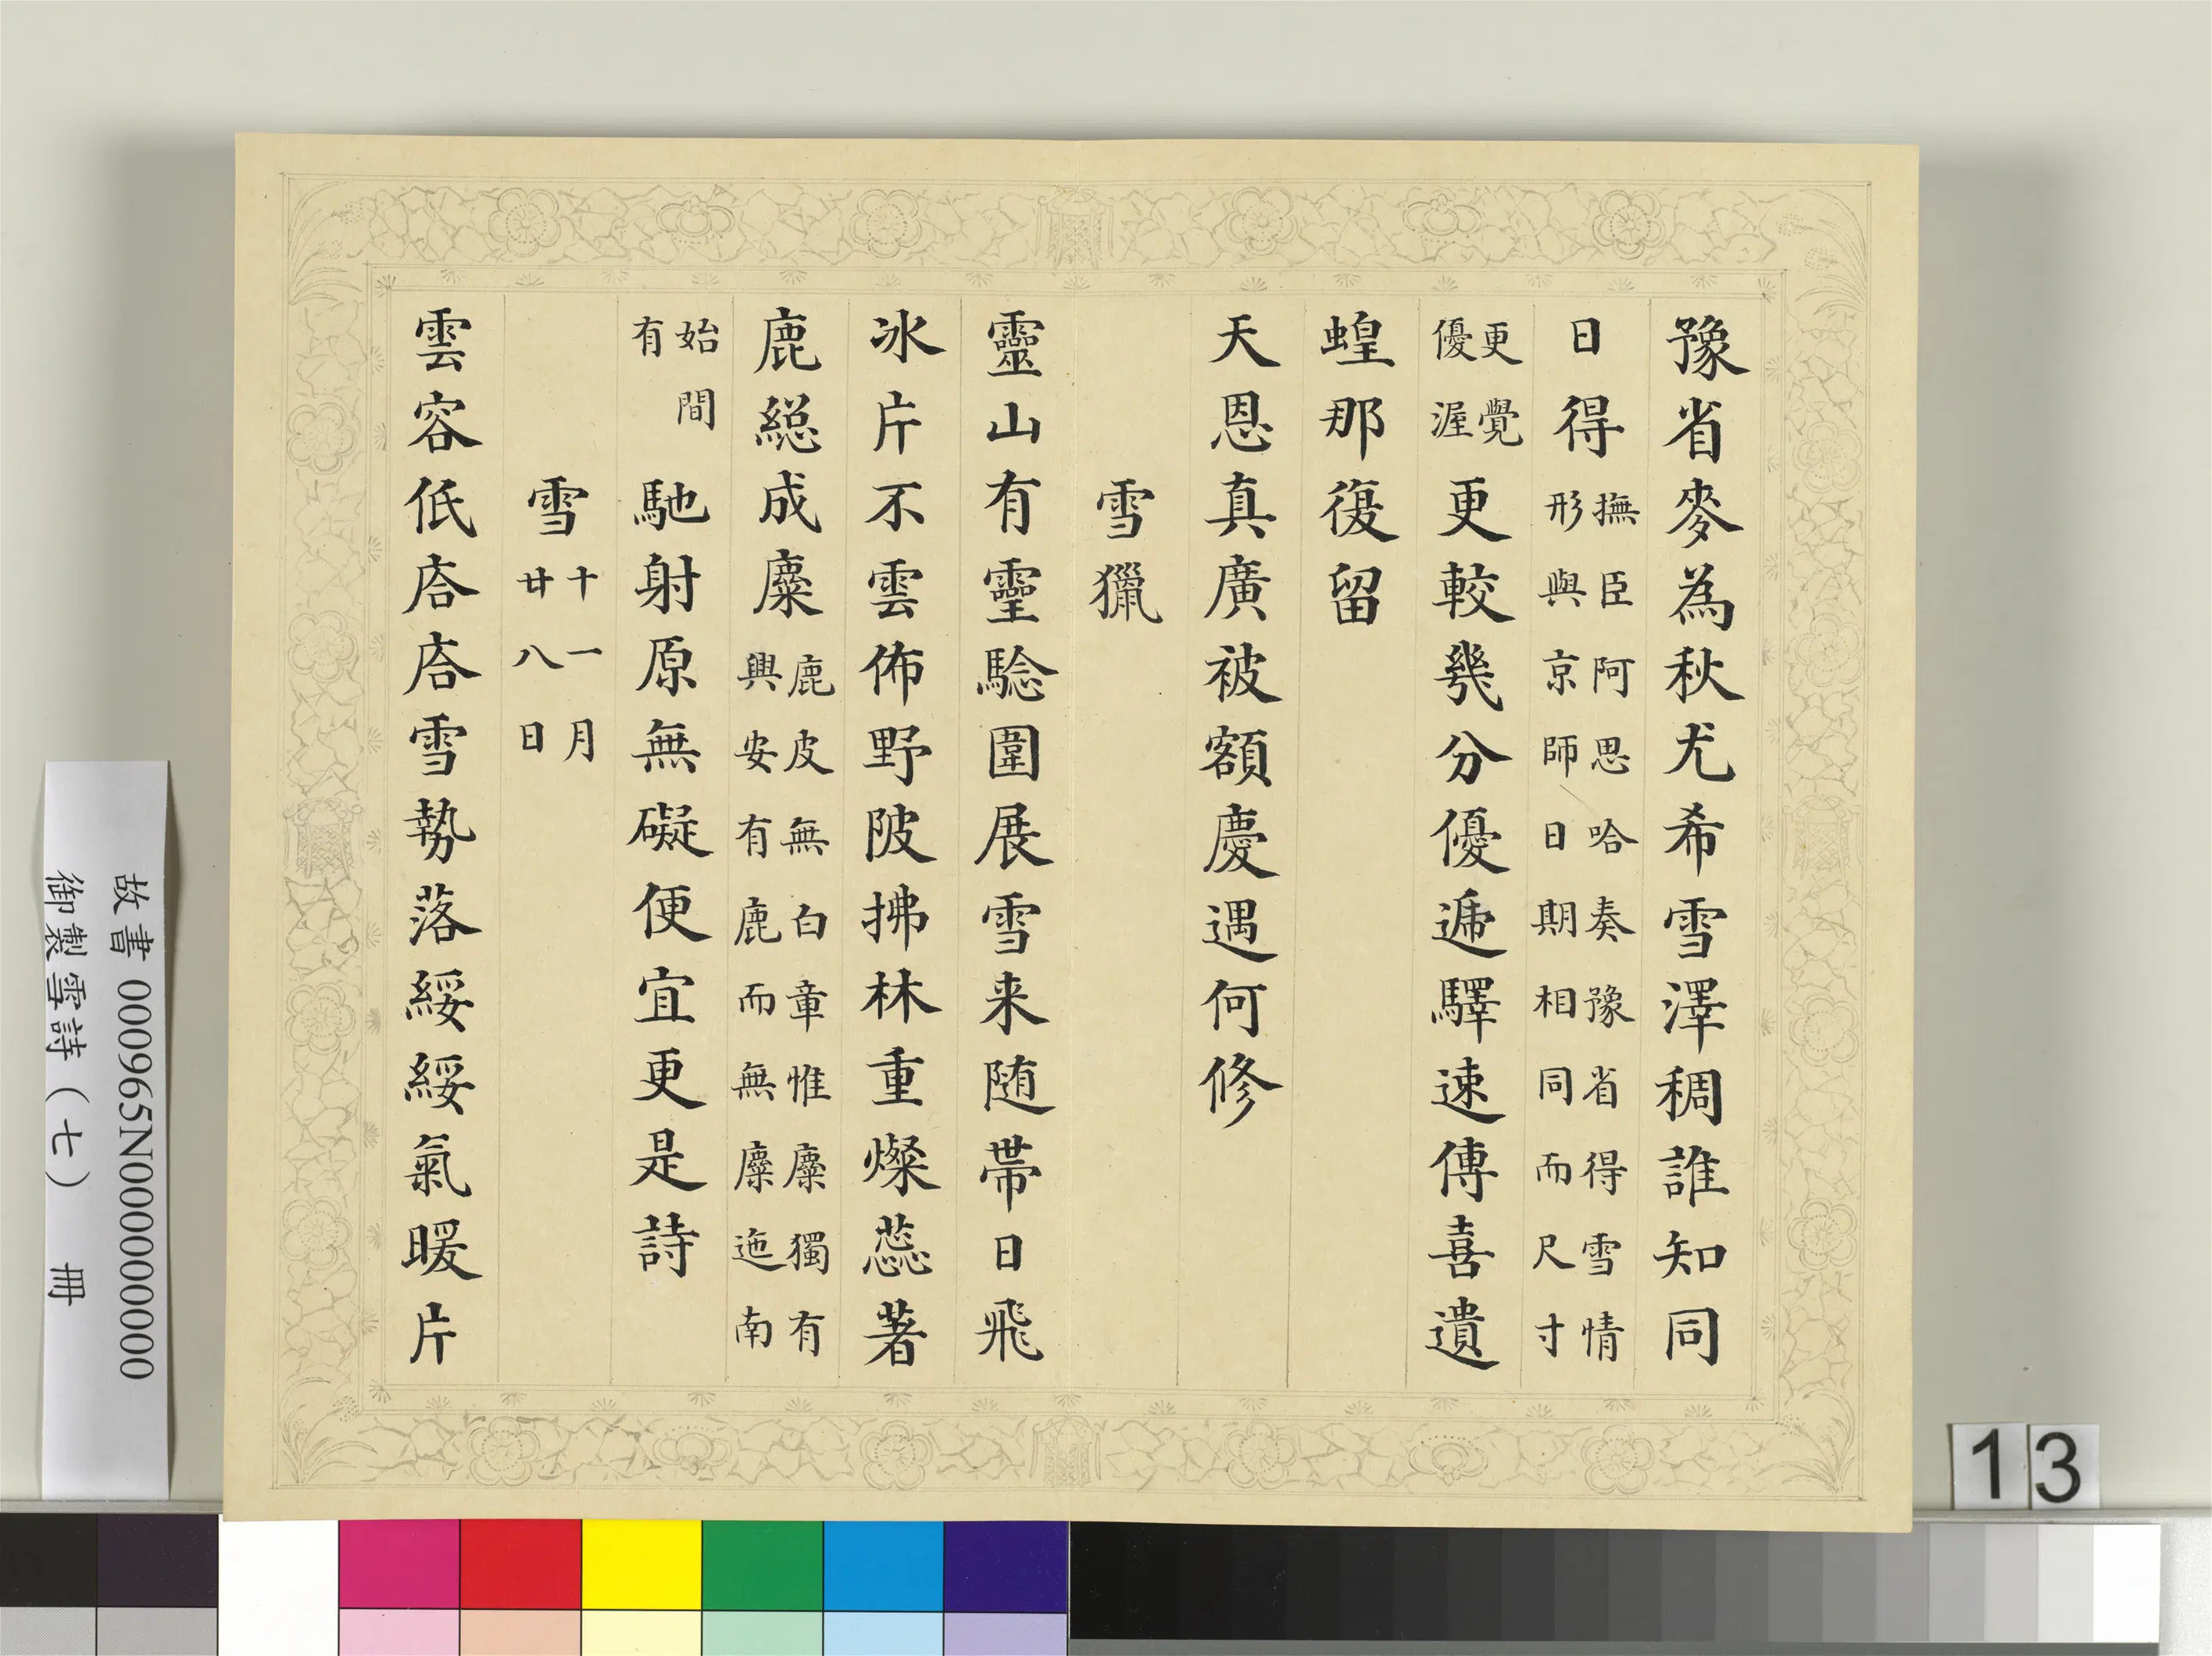 豫省麥為秋尤希雪澤稠誰知同
日得撫臣阿思哈奏豫省得雪情形與京師日期相同而尺寸
更覺優渥更較幾分優遞驛速傳喜遺
蝗那復留
天恩真廣被額慶遇何修
雪獵
靈山有靈驗圍展雪来随帶日飛
冰片不雲佈野陂拂林重燦蕊著
鹿総成麋鹿皮無白章惟麋獨有興安有鹿而無麋迤南
始間有馳射原無礙便宜更是詩
雪十一月廿八日
雲容低㕎㕎雪勢落綏綏氣暖片
故書000965N000000000
御製雪詩(七) 冊
13